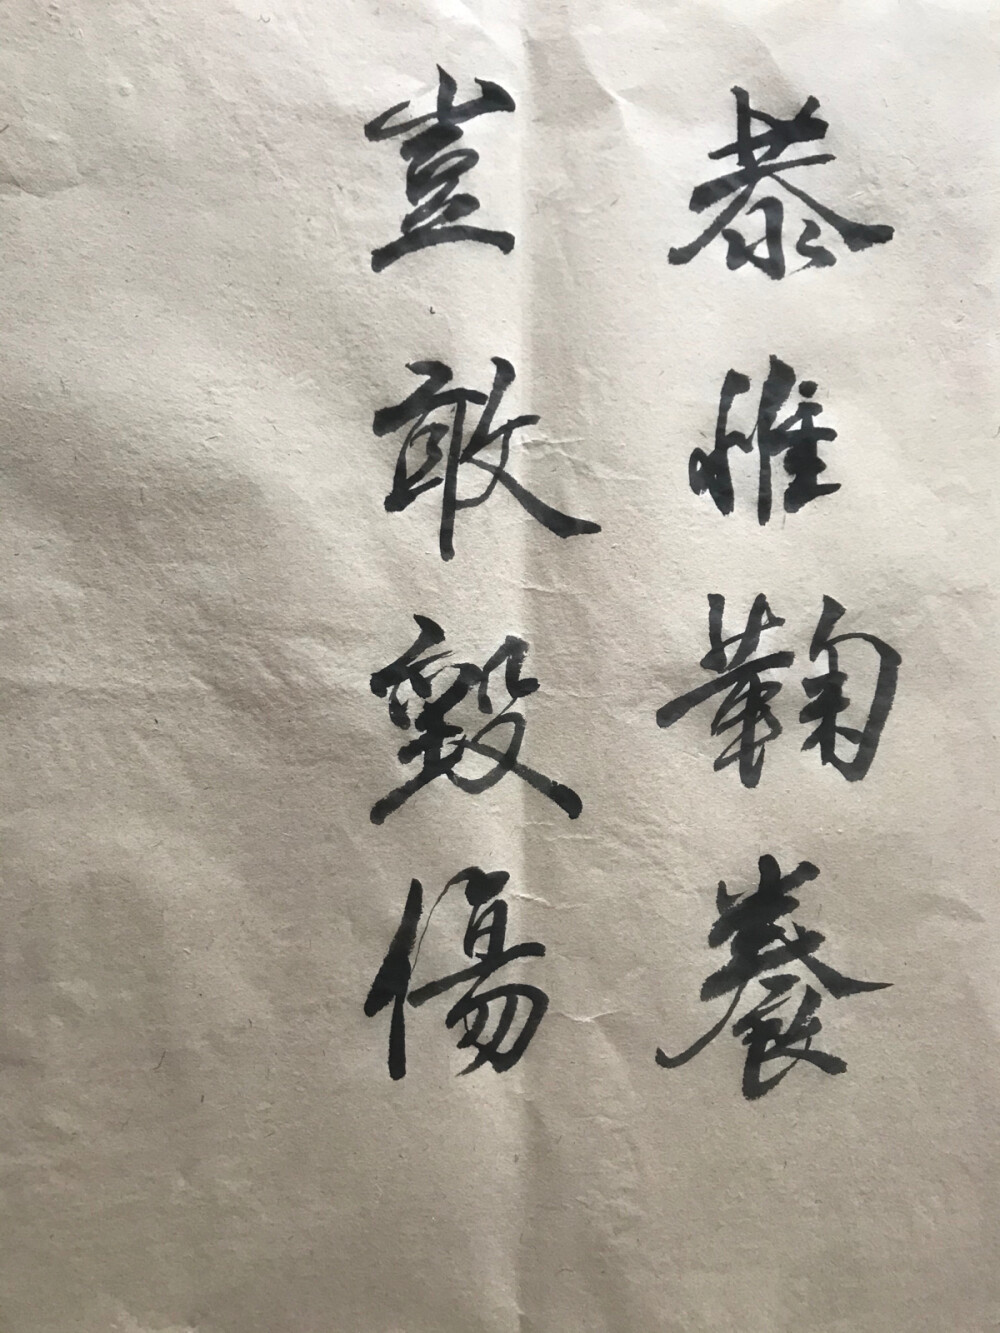 恭惟鞠養
豈敢毀傷